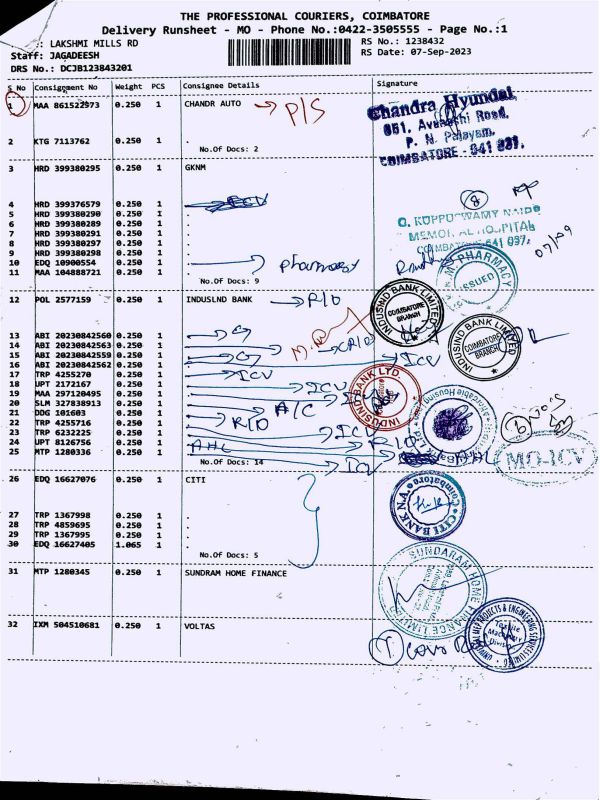 THE PROFESSIONAL COURIERS, COIMBATORE
Delivery Runsheet - MO - Phone No.:0422-3505555 - Page No.:1
: LAKSHMI MILLS RD
RS No.: 1238432
Staff: JAGADEESH
RS Date: 07-Sep-2023
DRS No.: DCJB123843201
S No Consignment No Weight PCS Consignee Details Signature
1 MAA 861522973 0.250 1 CHANDR AUTO P/S
Chandra Hyundai,
851, Avanashi Road,
P. N. Palayam,
COIMBATORE - 641 037.
2 KTG 7113762 0.250 1 .
No.Of Docs: 2
3 HRD 399380295 0.250 1 GKNM
4 HRD 399376579 0.250 1 .
5 HRD 399380290 0.250 1 .
6 HRD 399380289 0.250 1 .
7 HRD 399380291 0.250 1 .
8 HRD 399380297 0.250 1 .
9 HRD 399380298 0.250 1 .
G. KUPPUSWAMY NAIDU
MEMORIAL HOSPITAL
COIMBATORE 641 037.
07/09
10 EDQ 10900554 0.250 1 . Pharmacy
11 MAA 104888721 0.250 1 .
No.Of Docs: 9
PHARMACY
ISSUED
12 POL 2577159 0.250 1 INDUSLND BANK R/D
INDUSIND BANK LIMITED
COIMBATORE BRANCH
13 ABI 20230842560 0.250 1 .
14 ABI 20230842563 0.250 1 .
15 ABI 20230842559 0.250 1 .
16 ABI 20230842562 0.250 1 . ICV
INDUSIND BANK LIMITED
COIMBATORE BRANCH
17 TRP 4255270 0.250 1 . ICV
18 UPT 2172167 0.250 1 . ICV
19 MAA 297120495 0.250 1 .
20 SLM 327838913 0.250 1 .
INDUSIND BANK LTD
21 DDG 101603 0.250 1 . A/C
22 TRP 4255716 0.250 1 . R/D
23 TRP 6232225 0.250 1 . ICV
24 UPT 8126756 0.250 1 . R/D
25 MTP 1280336 0.250 1 . AHL
No.Of Docs: 14
ICV AHL
MO-ICV
26 EDQ 16627076 0.250 1 CITI
CITI BANK N.A.
Coimbatore
27 TRP 1367998 0.250 1 .
28 TRP 4859695 0.250 1 .
29 TRP 1367995 0.250 1 .
30 EDQ 16627405 1.065 1 .
No.Of Docs: 5
31 MTP 1280345 0.250 1 SUNDRAM HOME FINANCE
SUNDARAM HOME FINANCE LIMITED
32 IXM 504510681 0.250 1 VOLTAS
UNIVERSAL MEP PROJECTS & ENGINEERING SERVICES LIMITED
Textile Machinery Division